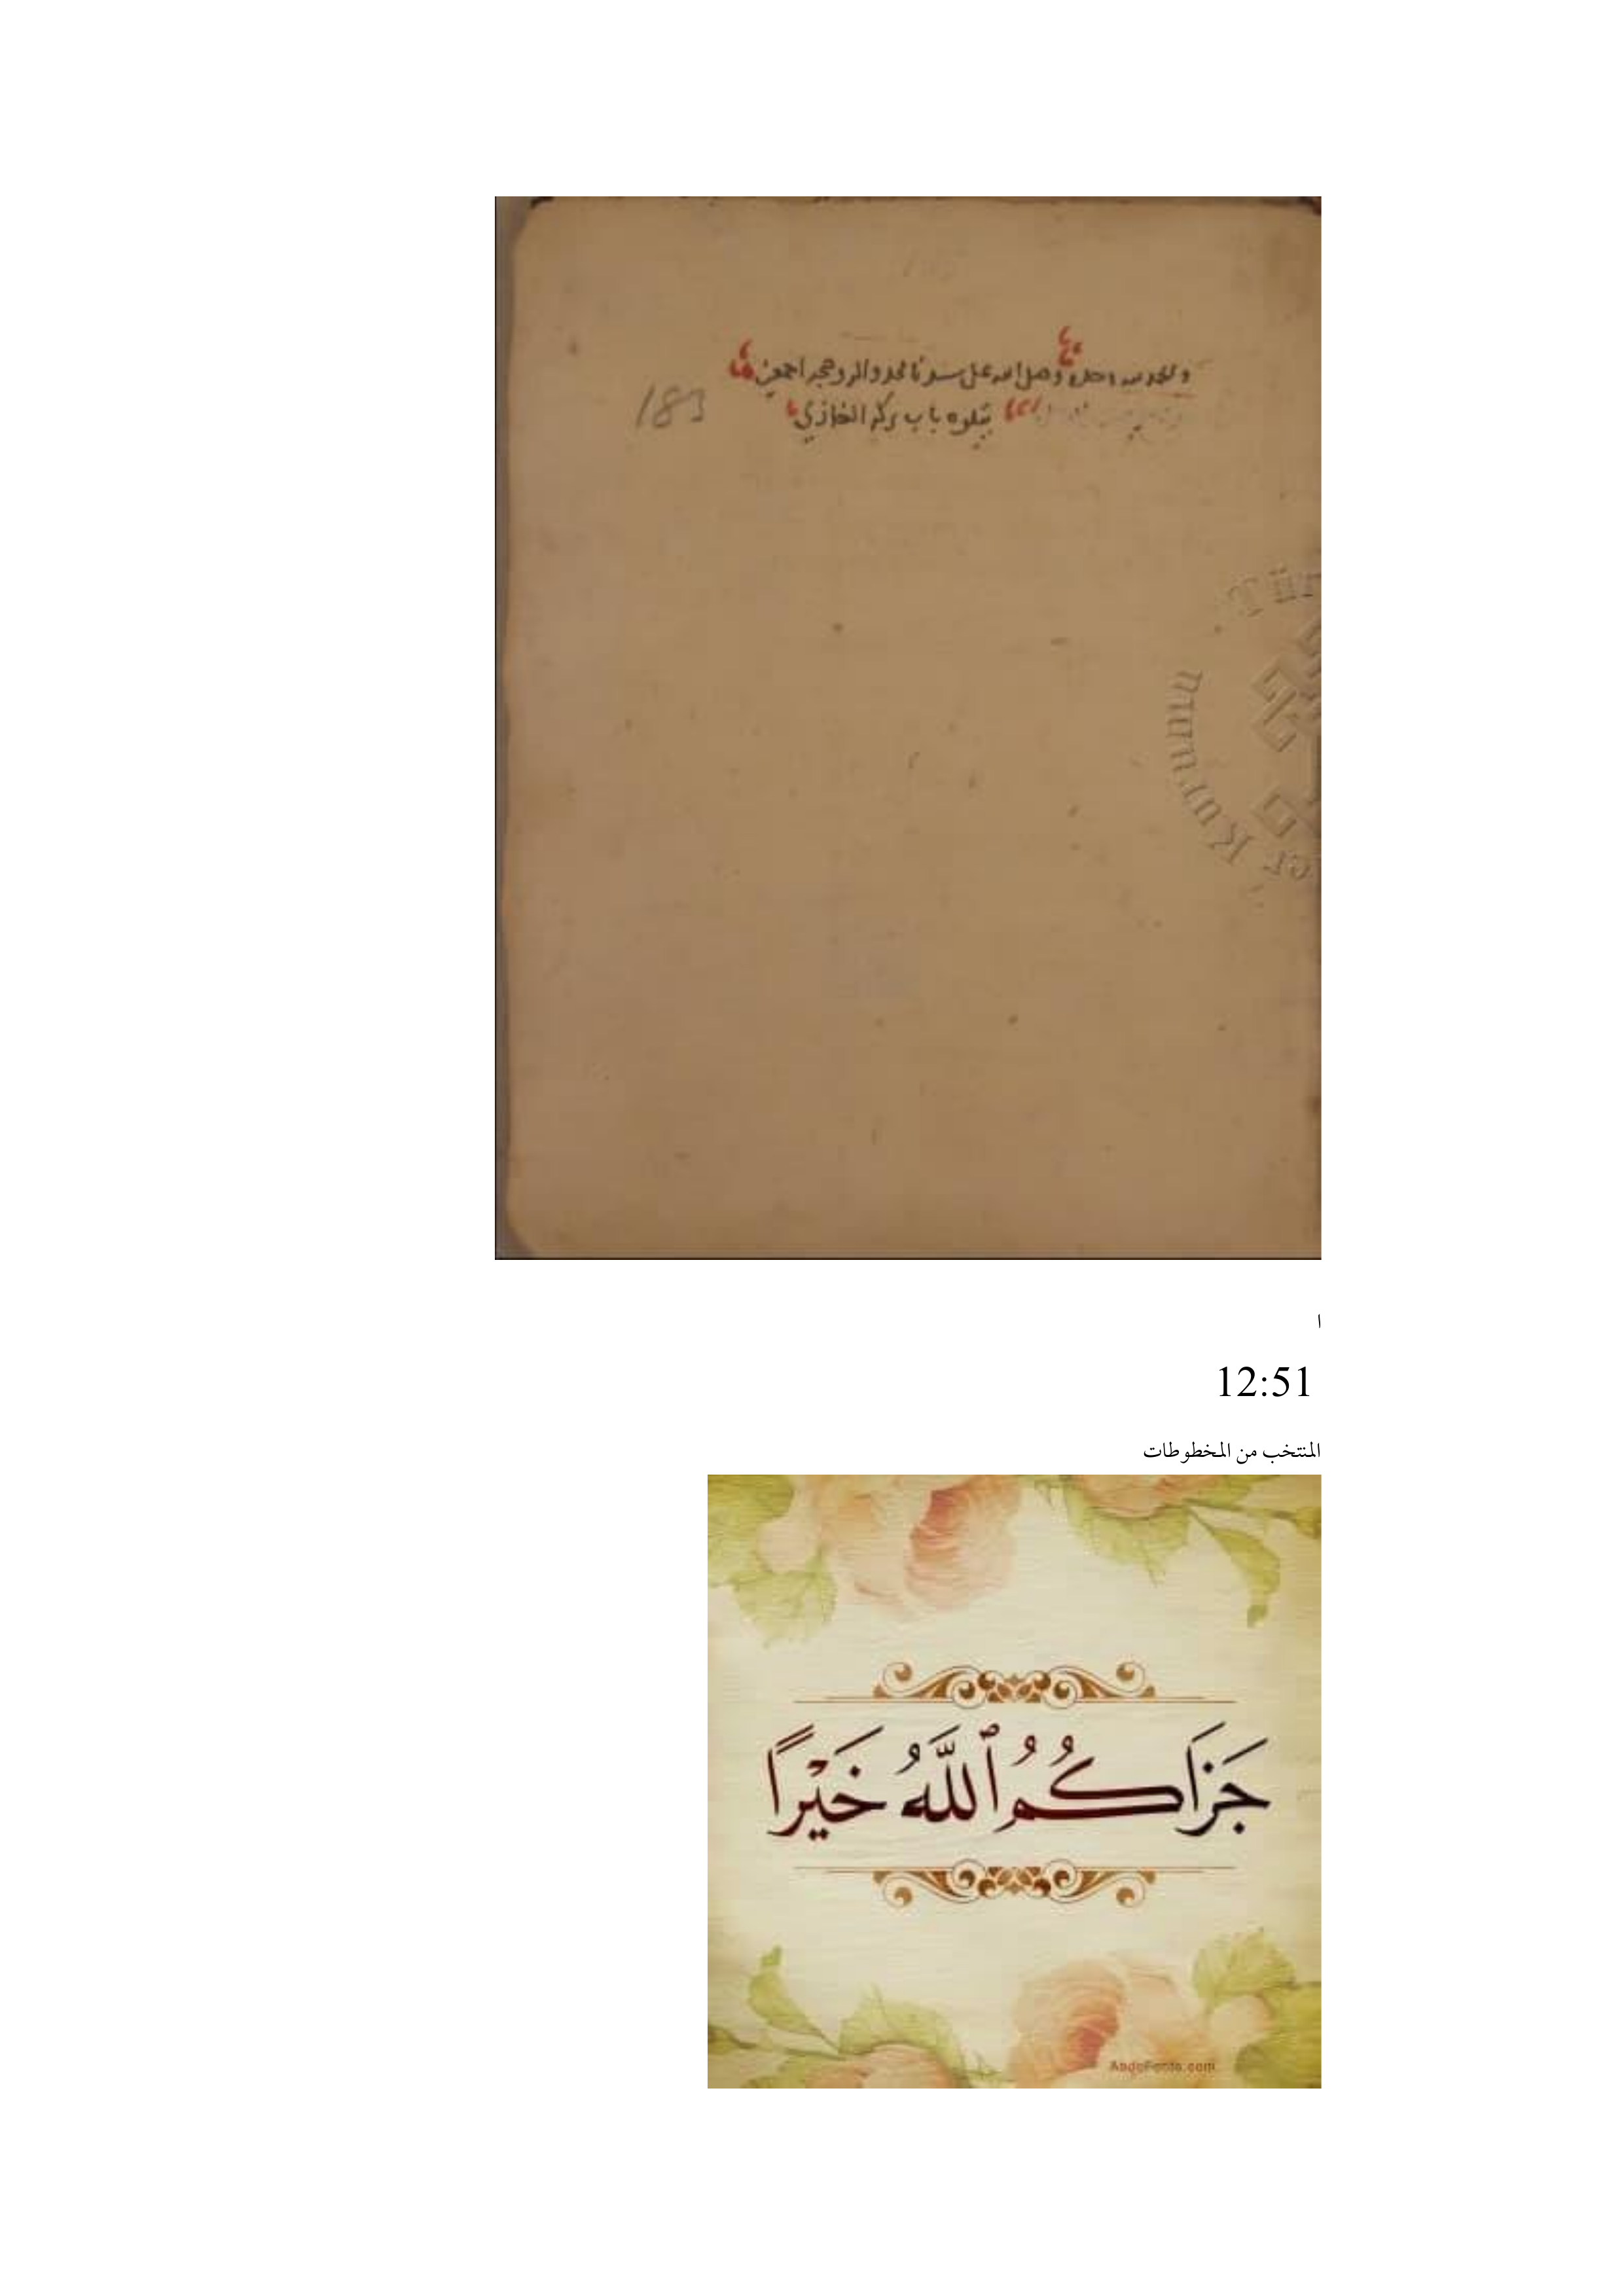 والحمد لله وحده وصلى الله على سيدنا محمد واله وصحبه اجمعين
يتلوه باب بركة الغازي
183
Tür
Kurumu
ا
12:51
المنتخب من المخطوطات
جَزَاكُمُ ٱللَّهُ خَيْرًا